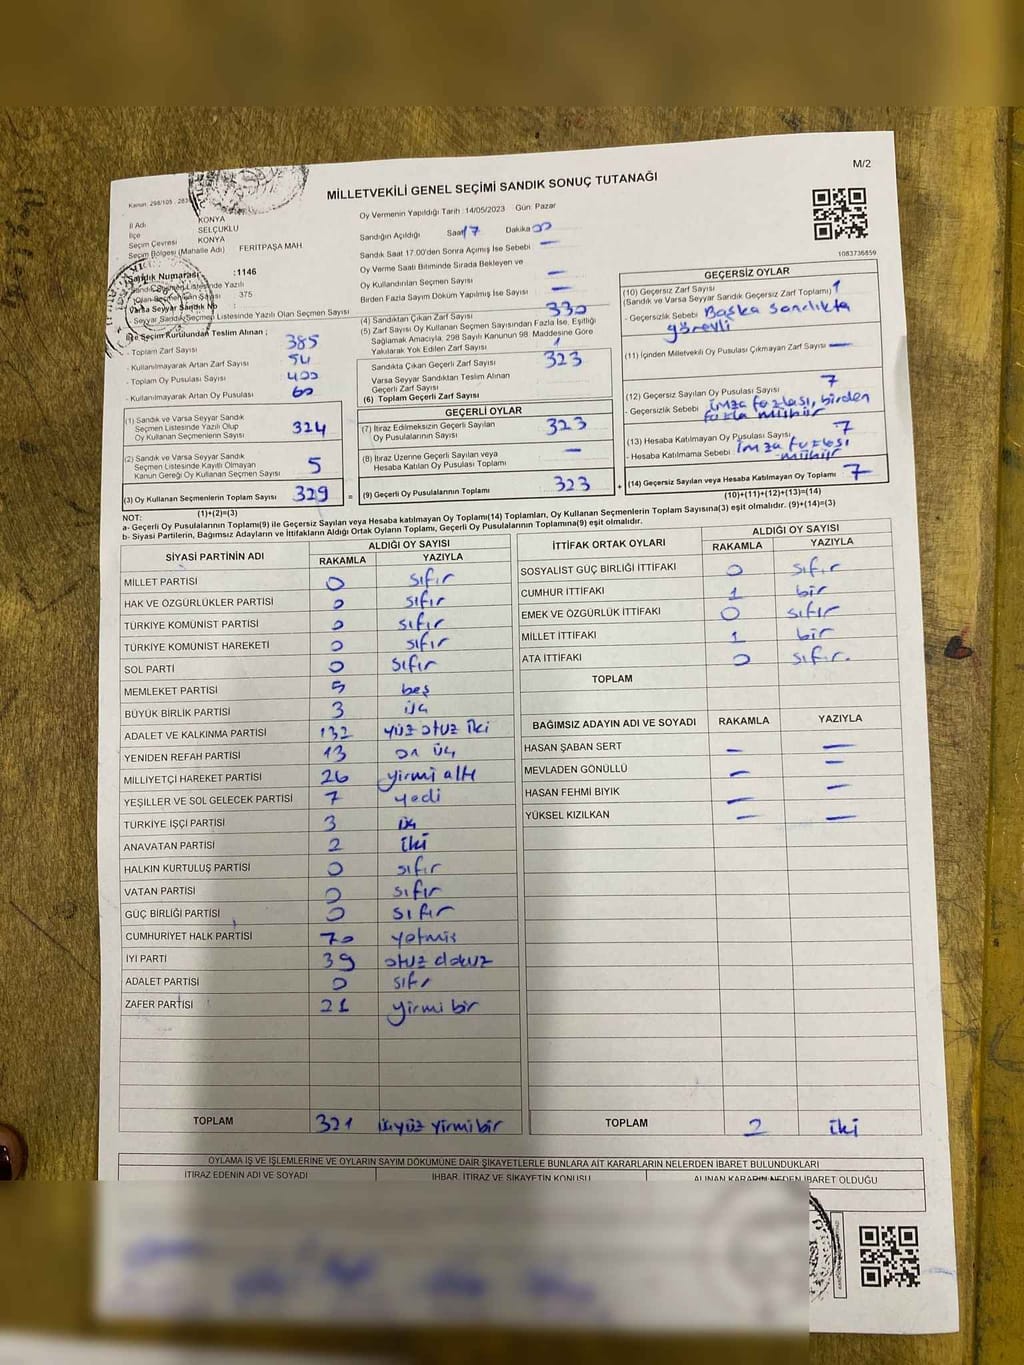 M/2
MİLLETVEKİLİ GENEL SEÇİMİ SANDIK SONUÇ TUTANAĞI
Kanun: 298/105
İl Adı KONYA
İlçe SELÇUKLU
Seçim Çevresi KONYA
Seçim Bölgesi (Mahalle Adı) FERİTPAŞA MAH.
Sandık Numarası :1146
375
Varsa Seyyar Sandık No
Seyyar Sandık Seçmen Listesinde Yazılı Olan Seçmen Sayısı
İlçe Seçim Kurulundan Teslim Alınan ;
- Toplam Zarf Sayısı 385
- Kullanılmayarak Artan Zarf Sayısı
- Toplam Oy Pusulası Sayısı 400
- Kullanılmayarak Artan Oy Pusulası 60
(1) Sandık ve Varsa Seyyar Sandık
Seçmen Listesinde Yazılı Olup
Oy Kullanan Seçmenlerin Sayısı 324
(2) Sandık ve Varsa Seyyar Sandık
Seçmen Listesinde Kayıtlı Olmayan
Kanun Gereği Oy Kullanan Seçmen Sayısı 5
(3) Oy Kullanan Seçmenlerin Toplam Sayısı 329 =
(1)+(2)=(3)
Oy Vermenin Yapıldığı Tarih :14/05/2023 Gün: Pazar
Sandığın Açıldığı Saat 17 Dakika 00
Sandık Saat 17:00'den Sonra Açımış İse Sebebi —
Oy Verme Saati Bitiminde Sırada Bekleyen ve
Oy Kullandırılan Seçmen Sayısı —
Birden Fazla Sayım Döküm Yapılmış İse Sayısı —
(4) Sandıktan Çıkan Zarf Sayısı 330
(5) Zarf Sayısı Oy Kullanan Seçmen Sayısından Fazla İse, Eşitliği
Sağlamak Amacıyla, 298 Sayılı Kanunun 98. Maddesine Göre
Yakılarak Yok Edilen Zarf Sayısı 1
Sandıkta Çıkan Geçerli Zarf Sayısı 323
Varsa Seyyar Sandıktan Teslim Alınan
Geçerli Zarf Sayısı
(6) Toplam Geçerli Zarf Sayısı
GEÇERLİ OYLAR
(7) İtiraz Edilmeksizin Geçerli Sayılan
Oy Pusulalarının Sayısı 323
(8) İtiraz Üzerine Geçerli Sayılan veya
Hesaba Katılan Oy Pusulası Toplamı —
(9) Geçerli Oy Pusulalarının Toplamı 323 +
1083736859
GEÇERSİZ OYLAR
(10) Geçersiz Zarf Sayısı
(Sandık ve Varsa Seyyar Sandık Geçersiz Zarf Toplamı) 1
- Geçersizlik Sebebi Başka sandıkta
görevli
(11) İçinden Milletvekili Oy Pusulası Çıkmayan Zarf Sayısı —
(12) Geçersiz Sayılan Oy Pusulası Sayısı 7
- Geçersizlik Sebebi imza fazlası, birden
fazla mühür
(13) Hesaba Katılmayan Oy Pusulası Sayısı 7
- Hesaba Katılmama Sebebi imza fazlası
mühür
(14) Geçersiz Sayılan veya Hesaba Katılmayan Oy Toplamı 7
(10)+(11)+(12)+(13)=(14)
NOT:
a- Geçerli Oy Pusulalarının Toplamı(9) ile Geçersiz Sayılan veya Hesaba katılmayan Oy Toplamı(14) Toplamları, Oy Kullanan Seçmenlerin Toplam Sayısına(3) eşit olmalıdır. (9)+(14)=(3)
b- Siyasi Partilerin, Bağımsız Adayların ve İttifakların Aldığı Ortak Oyların Toplamı, Geçerli Oy Pusulalarının Toplamına(9) eşit olmalıdır.
SİYASİ PARTİNİN ADI ALDIĞI OY SAYISI
RAKAMLA YAZIYLA
MİLLET PARTİSİ 0 sıfır
HAK VE ÖZGÜRLÜKLER PARTİSİ 0 sıfır
TÜRKİYE KOMÜNİST PARTİSİ 0 sıfır
TÜRKİYE KOMÜNİST HAREKETİ 0 sıfır
SOL PARTİ 0 sıfır
MEMLEKET PARTİSİ 5 beş
BÜYÜK BİRLİK PARTİSİ 3 üç
ADALET VE KALKINMA PARTİSİ 132 yüz otuz iki
YENİDEN REFAH PARTİSİ 13 on üç
MİLLİYETÇİ HAREKET PARTİSİ 26 yirmi altı
YEŞİLLER VE SOL GELECEK PARTİSİ 7 yedi
TÜRKİYE İŞÇİ PARTİSİ 3 üç
ANAVATAN PARTİSİ 2 iki
HALKIN KURTULUŞ PARTİSİ 0 sıfır
VATAN PARTİSİ 0 sıfır
GÜÇ BİRLİĞİ PARTİSİ 0 sıfır
CUMHURİYET HALK PARTİSİ 70 yetmiş
İYİ PARTİ 39 otuz dokuz
ADALET PARTİSİ 0 sıfır
ZAFER PARTİSİ 21 yirmi bir
TOPLAM 321 üçyüz yirmi bir
İTTİFAK ORTAK OYLARI ALDIĞI OY SAYISI
RAKAMLA YAZIYLA
SOSYALİST GÜÇ BİRLİĞİ İTTİFAKI 0 sıfır
CUMHUR İTTİFAKI 1 bir
EMEK VE ÖZGÜRLÜK İTTİFAKI 0 sıfır
MİLLET İTTİFAKI 1 bir
ATA İTTİFAKI 0 sıfır.
TOPLAM
BAĞIMSIZ ADAYIN ADI VE SOYADI RAKAMLA YAZIYLA
HASAN ŞABAN SERT — —
MEVLADEN GÖNÜLLÜ — —
HASAN FEHMİ BIYIK — —
YÜKSEL KIZILKAN — —
TOPLAM 2 iki
OYLAMA İŞ VE İŞLEMLERİNE VE OYLARIN SAYIM DÖKÜMÜNE DAİR ŞİKAYETLERLE BUNLARA AİT KARARLARIN NELERDEN İBARET BULUNDUKLARI
İTİRAZ EDENİN ADI VE SOYADI İHBAR, İTİRAZ VE ŞİKAYETİN KONUSU ALINAN KARARIN NEDEN İBARET OLDUĞU